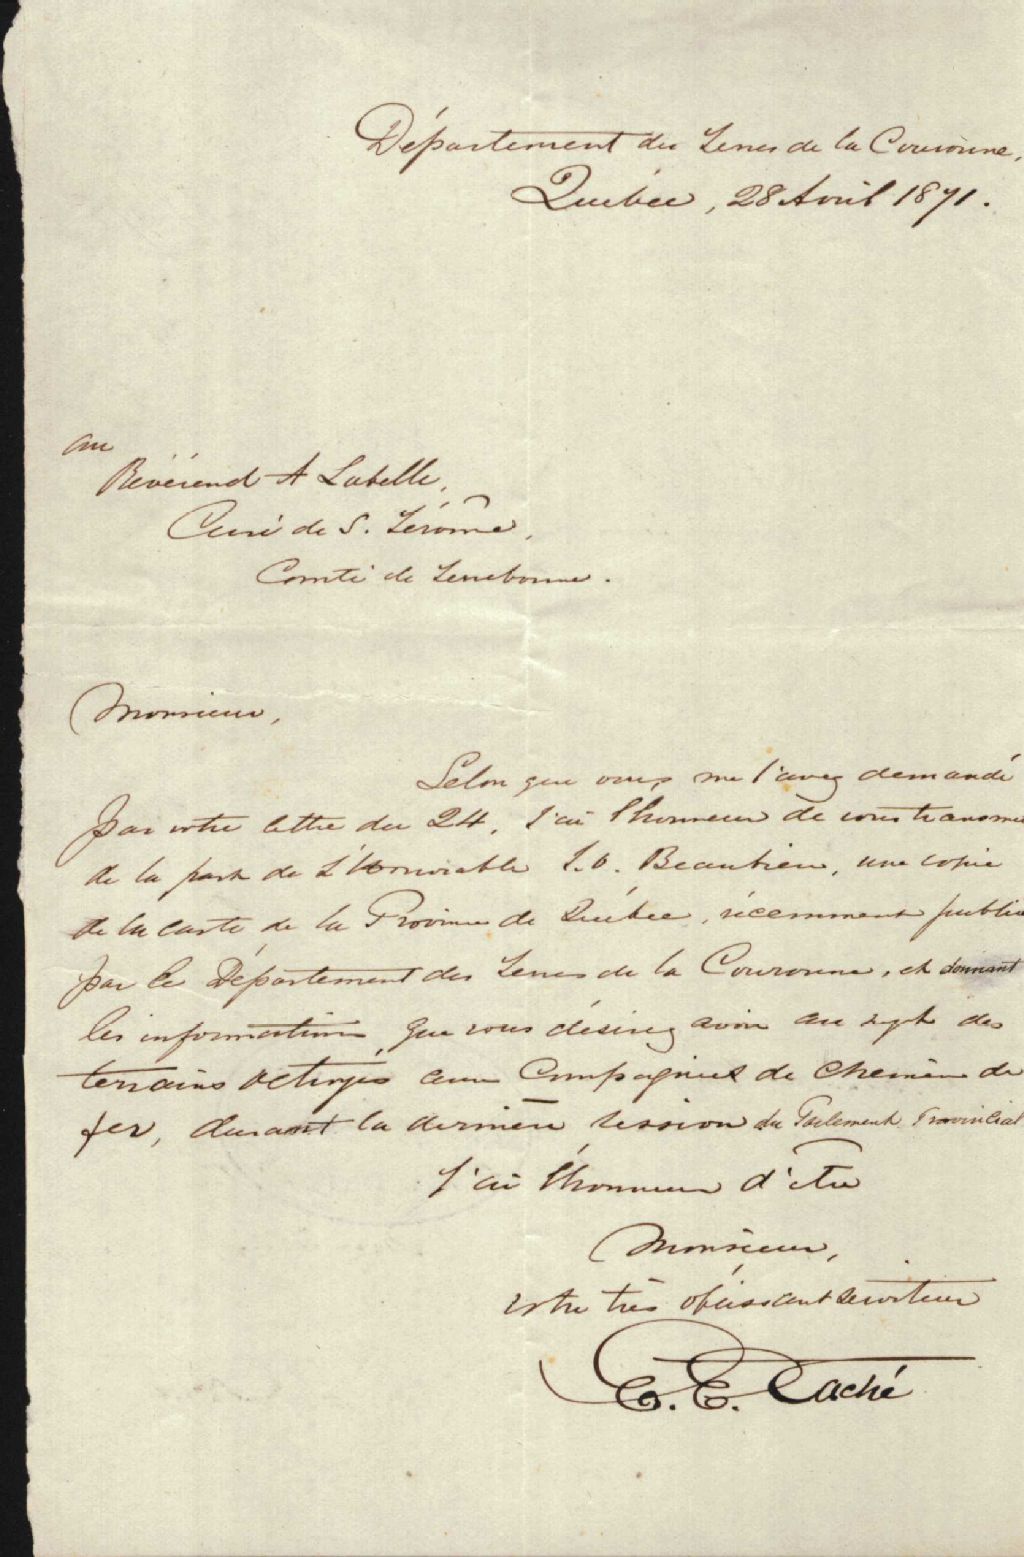 Département des Terres de la Couronne,
Québec, 28 Avril 1871.
au
Révérend A Labelle,
Curé de S. Jérôme,
Comté de Terrebonne.
Monsieur,
Selon que vous me l'avez demandé
par votre lettre du 24, j'ai l'honneur de vous transme
de la part de L'Honorable J. O. Beaubien, une copie
de la carte de la Province de Québec, récemment publié
par le Département des Terres de la Couronne, et donnant
les informations que vous désirez avoir au sujet des
terrains octroyés aux Compagnies de Chemins de
fer, durant la dernière session du Parlement Provincial
J'ai l'honneur d'être
Monsieur,
votre très obéissant serviteur
E. E. Taché